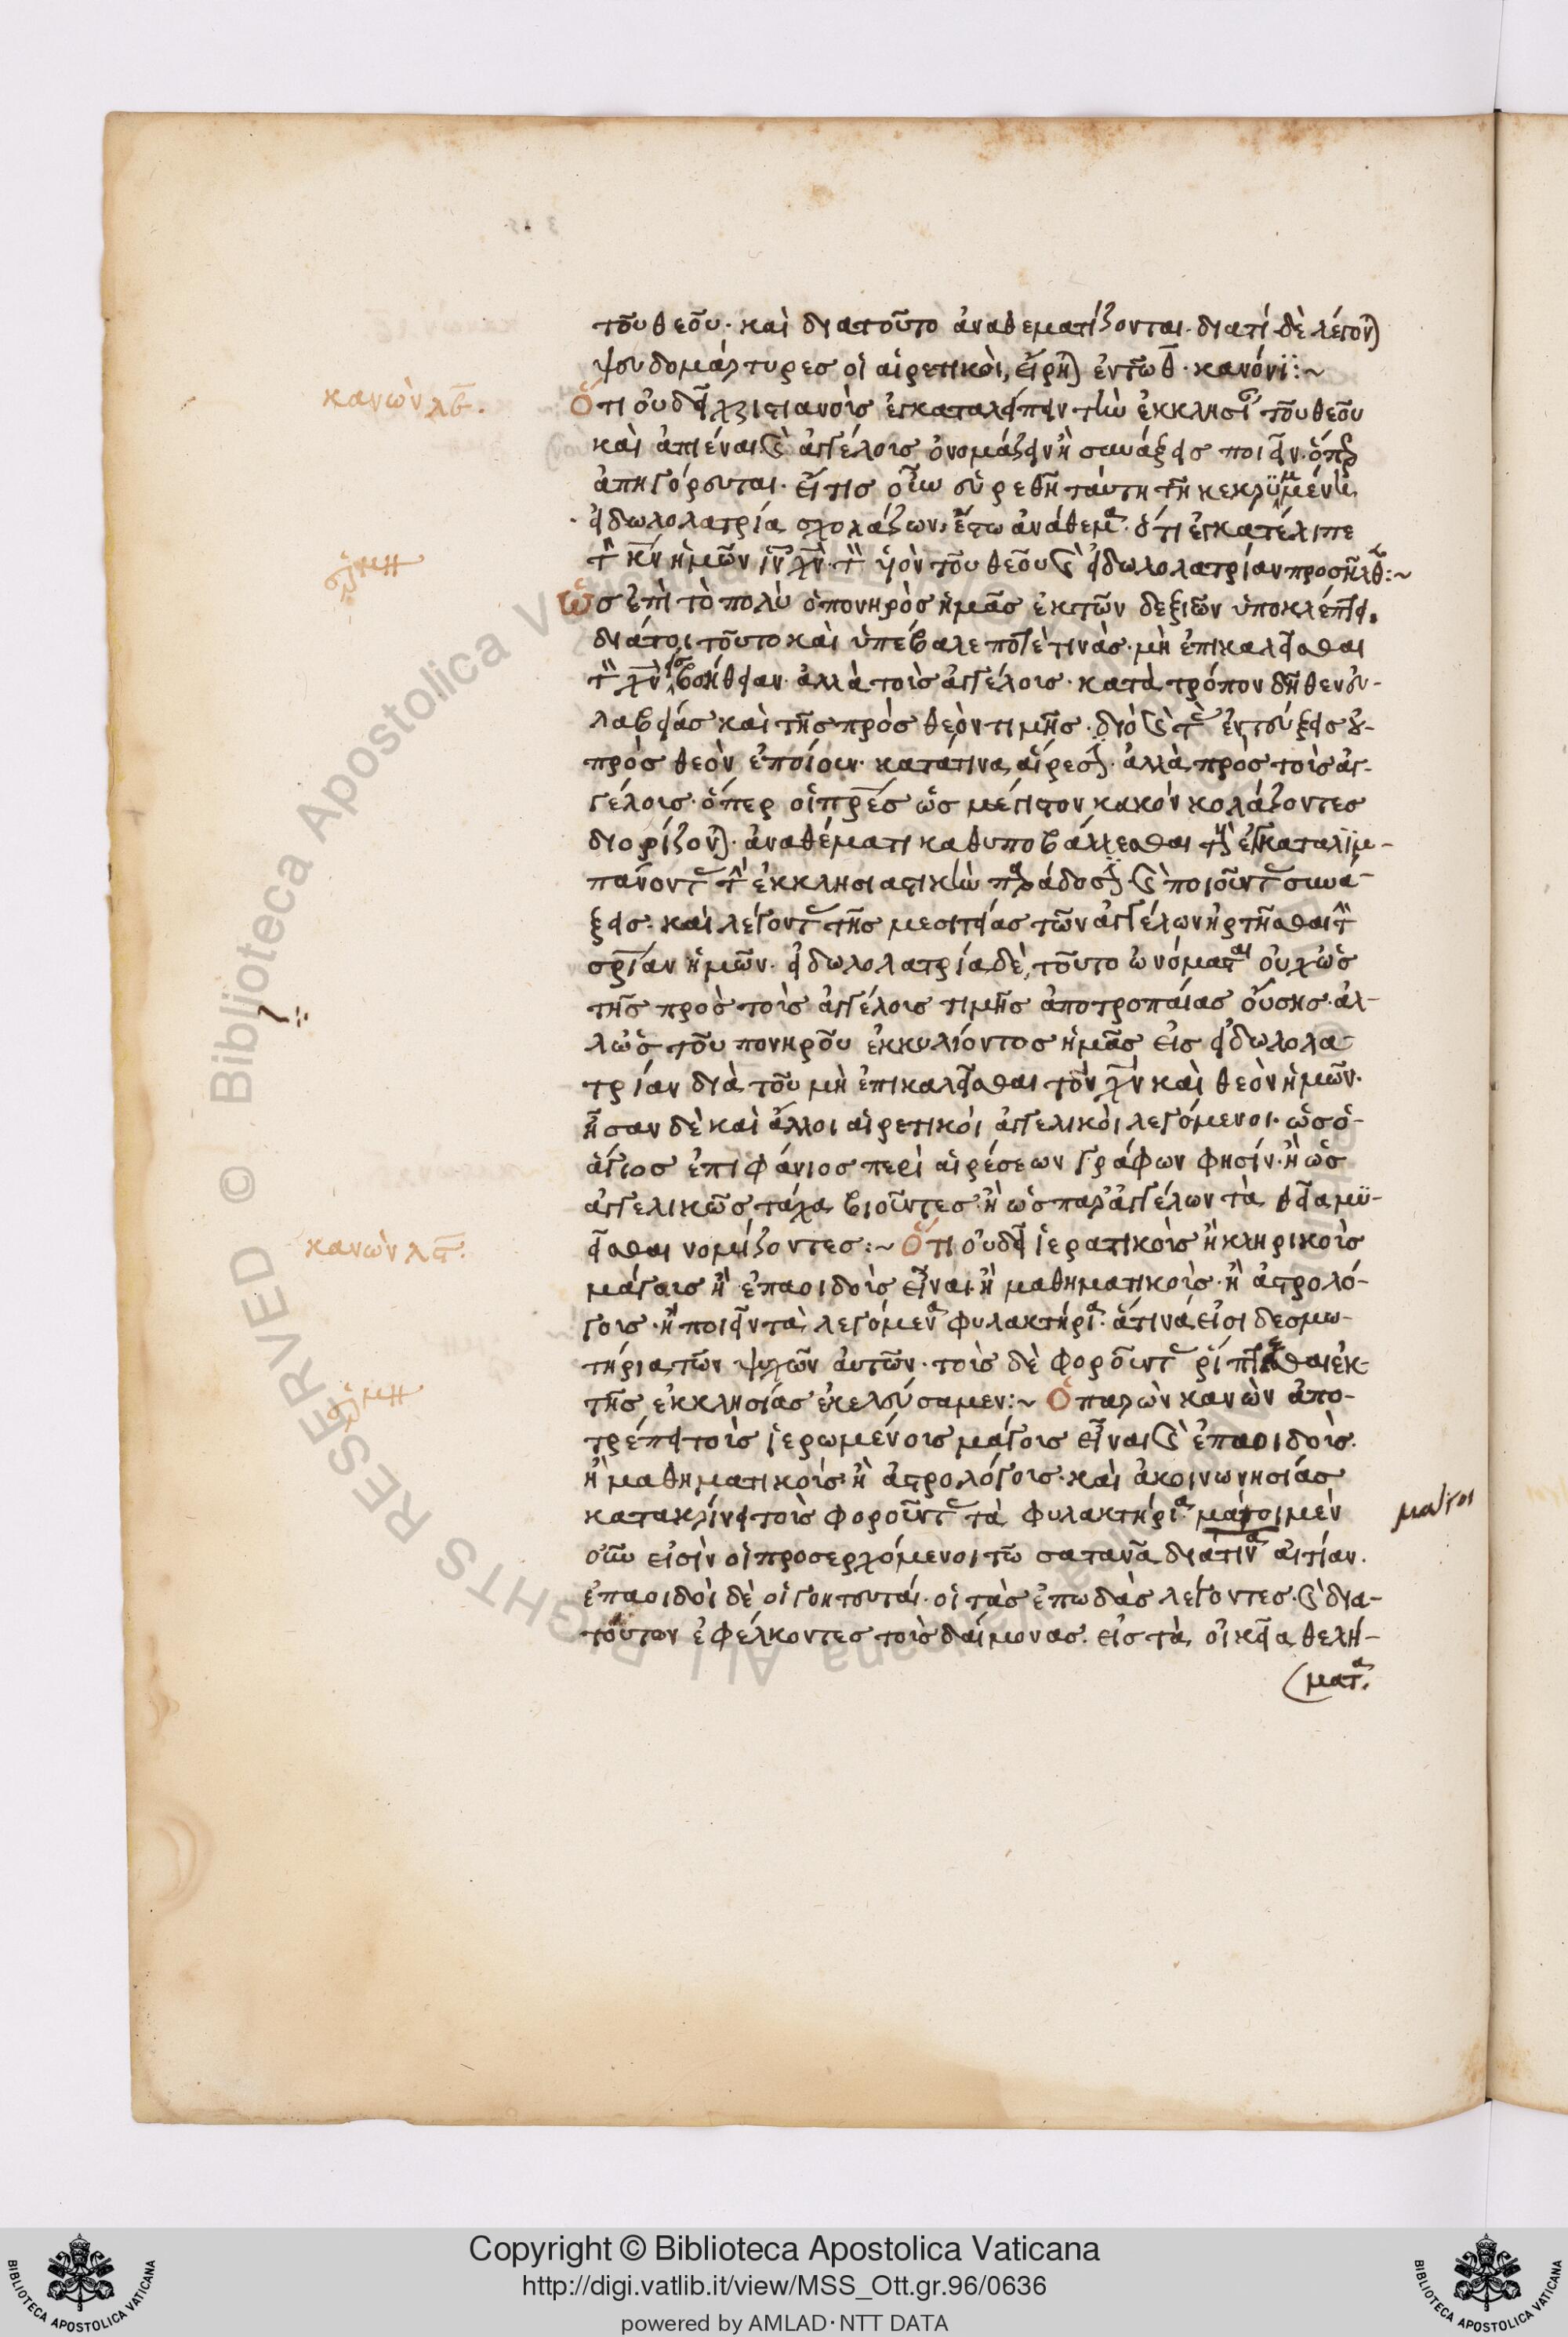 τοῦ θεοῦ· καὶ διατοῦτο ἀναθεματίζονται· διατί δὲ λέγον)
ψευδομάρτυρες οἱ αἱρετικοὶ, εἴρη) ἐν τῶ θ̅· κανόνϊ:~
κανὼν λε̅.
Ὅτι οὐ δεῖ χριστιανοῖς ἐγκαταλείπειν τὴν ἐκκλησί τοῦ θεοῦ
καὶ ἀπιέναι καὶ ἀγγέλους ὀνομάζειν ἢ συνάξεις ποιεῖν· ὅπερ
ἀπηγόρευται· εἴ τις οὖν εὑρεθῆ ταύτη τῆ κεκρϋμμένη
εἰδωλολατρία σχολάζων, ἔστω ἀνάθεμα· ὅτι ἐγκατέλιπε
τὸν κ̅ν ἡμῶν ι̅ν χ̅ν· τὸν υἱὸν τοῦ θεοῦ καὶ εἰδωλολατρίαν προσῆλθ:~
Ὡς ἐπὶ τὸ πολὺ ὁ πονηρὸς ἡμᾶς ἐκ τῶν δεξιῶν ὑποκλέπτει.
διάτοι τοῦτο καὶ ὑπέβαλε ποτὲ τινὰς· μὴ ἐπικαλεῖσθαι
τὸν χ̅ν εἰς βοήθειαν· ἀλλὰ τοὺς ἀγγέλους· κατὰ τρόπον δῆθεν εὐ-
λαβείας καὶ τῆς πρὸς θεὸν τιμῆς· διὸ καὶ τὰς ἐντεύξεις οὐ-
πρὸς θεὸν ἐποίουν· κατά τινα αἵρεσιν· ἀλλὰ πρὸς τοὺς ἀγ-
γέλους· ὅπερ οἱ π̅ρες ὡς μέγιστον κακὸν κολάζοντες
διορίζον)· ἀναθέματι καθυποβάλλεσθαι τοὺς ἐγκαταλϊμ-
πάνοντας τὴν ἐκκλησιαστικὴν παράδοσιν καὶ ποιοῦντας συνά-
ξεις· καὶ λέγοντας τῆς μεσιτείας τῶν ἀγγέλων ἠρτῆσθαι τὴν
σ̅ρίαν ἡμῶν· εἰδωλολατρία δὲ, τοῦτο ὠνόμασται οὐχ ὡς
τῆς πρὸς τοὺς ἀγγέλους τιμῆς ἀποτροπαίας οὔσης· ἀλ-
λ ὡς τοῦ πονηροῦ ἐκκυλίοντος ἡμᾶς εἰς εἰδωλολα-
τρίαν διὰ τοῦ μὴ ἐπικαλεῖσθαι τὸν χ̅ν καὶ θεὸν ἡμῶν·
ἦσαν δὲ καὶ ἄλλοι αἱρετικοὶ ἀγγελικοὶ λεγόμενοι· ὡς ὁ-
ἅγιος ἐπιφάνιος περὶ αἱρέσεων γράφων φησίν· ἢ ὡς
ἀγγελικῶς τάχα βιοῦντες· ἢ ὡς παρ ἀγγέλων τὰ θεῖα μϋ-
κανὼν λς̅.
εῖσθαι νομίζοντες:~ Ὅτι οὐ δεῖ ἱερατικοὺς ἢ κληρικοὺς
μάγους ἢ ἐπαοιδοὺς εἶναι· ἢ μαθηματικοὺς· ἢ ἀστρολό-
γους· ἢ ποιεῖν τὰ λεγόμενα φυλακτήρια· ἅτινά εἰσι δεσμω-
τήρια τῶν ψυχῶν αὐτῶν· τοὺς δὲ φοροῦντας ῥίπτεσθαι ἐκ-
τῆς ἐκκλησίας ἐκελεύσαμεν:~ Ὁ παρὼν κανὼν ἀπο-
τρέπει τοὺς ἱερωμένους μάγους εἶναι καὶ ἐπαοιδοὺς·
ἢ μαθηματικοὺς· ἢ ἀστρολόγους· καὶ ἀκοινωνησίας
κατακρίνει τοὺς φοροῦντας τὰ φυλακτήρια· μάγοι μὲν
μάγοι
οὖν εἰσὶν οἱ προσερχόμενοι τῶ σατανᾶ διάτινα αἰτίαν·
ἐπαοιδοὶ δὲ οἱ γοητευταί· οἱ τὰς ἐπωδὰς λέγοντες· καὶ δια-
τούτων ἐφέλκοντες τοὺς δαίμονας· εἰς τὰ οἰκεῖα θελή-
(ματα.
Copyright © Biblioteca Apostolica Vaticana
http://digi.vatlib.it/view/MSS_Ott.gr.96/0636
powered by AMLAD·NTT DATA